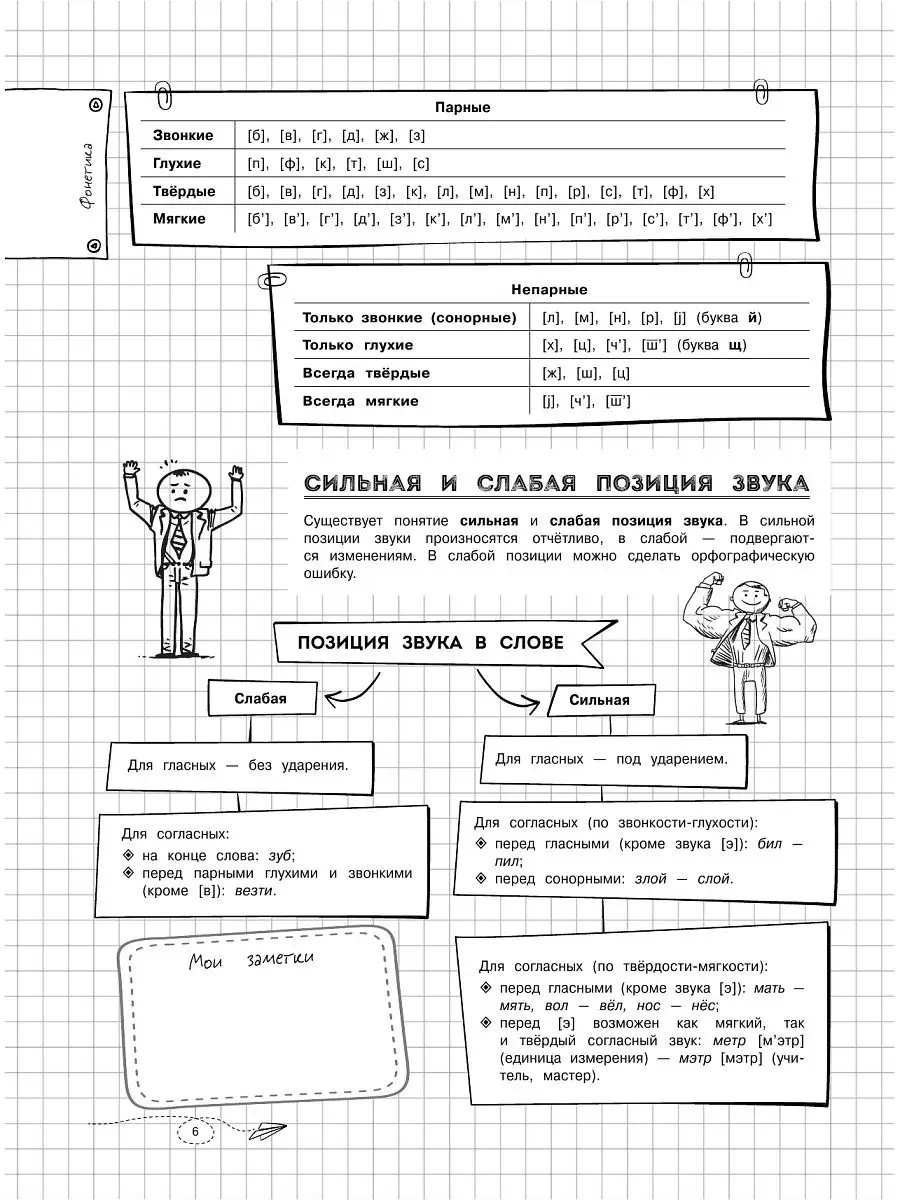 Фонетика
Парные
Звонкие [б], [в], [г], [д], [ж], [з]
Глухие [п], [ф], [к], [т], [ш], [с]
Твёрдые [б], [в], [г], [д], [з], [к], [л], [м], [н], [п], [р], [с], [т], [ф], [х]
Мягкие [б’], [в’], [г’], [д’], [з’], [к’], [л’], [м’], [н’], [п’], [р’], [с’], [т’], [ф’], [х’]
Непарные
Только звонкие (сонорные) [л], [м], [н], [р], [j] (буква й)
Только глухие [х], [ц], [ч’], [ш̅’] (буква щ)
Всегда твёрдые [ж], [ш], [ц]
Всегда мягкие [j], [ч’], [ш̅’]
СИЛЬНАЯ И СЛАБАЯ ПОЗИЦИЯ ЗВУКА
Существует понятие сильная и слабая позиция звука. В сильной
позиции звуки произносятся отчётливо, в слабой — подвергают-
ся изменениям. В слабой позиции можно сделать орфографическую
ошибку.
ПОЗИЦИЯ ЗВУКА В СЛОВЕ
Слабая
Для гласных — без ударения.
Для согласных:
на конце слова: зуб;
перед парными глухими и звонкими
(кроме [в]): везти.
Сильная
Для гласных — под ударением.
Для согласных (по звонкости-глухости):
перед гласными (кроме звука [э]): бил —
пил;
перед сонорными: злой — слой.
Для согласных (по твёрдости-мягкости):
перед гласными (кроме звука [э]): мать —
мять, вол — вёл, нос — нёс;
перед [э] возможен как мягкий, так
и твёрдый согласный звук: метр [м’этр]
(единица измерения) — мэтр [мэтр] (учи-
тель, мастер).
Мои заметки
6